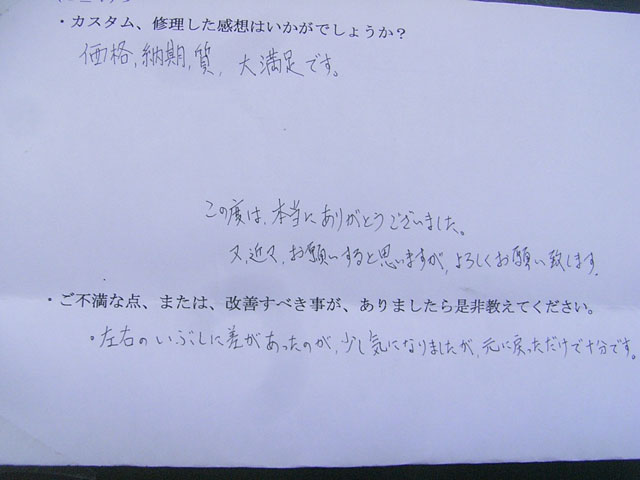 ・カスタム、修理した感想はいかがでしょうか？
価格,納期,質, 大満足です。
この度は、本当にありがとうございました。
又,近々,お願いすると思いますが,よろしくお願い致します.
・ご不満な点、または、改善すべき事が、ありましたら是非教えてください。
・左右のいぶしに差があったのが,少し気になりましたが,元に戻っただけで十分です。